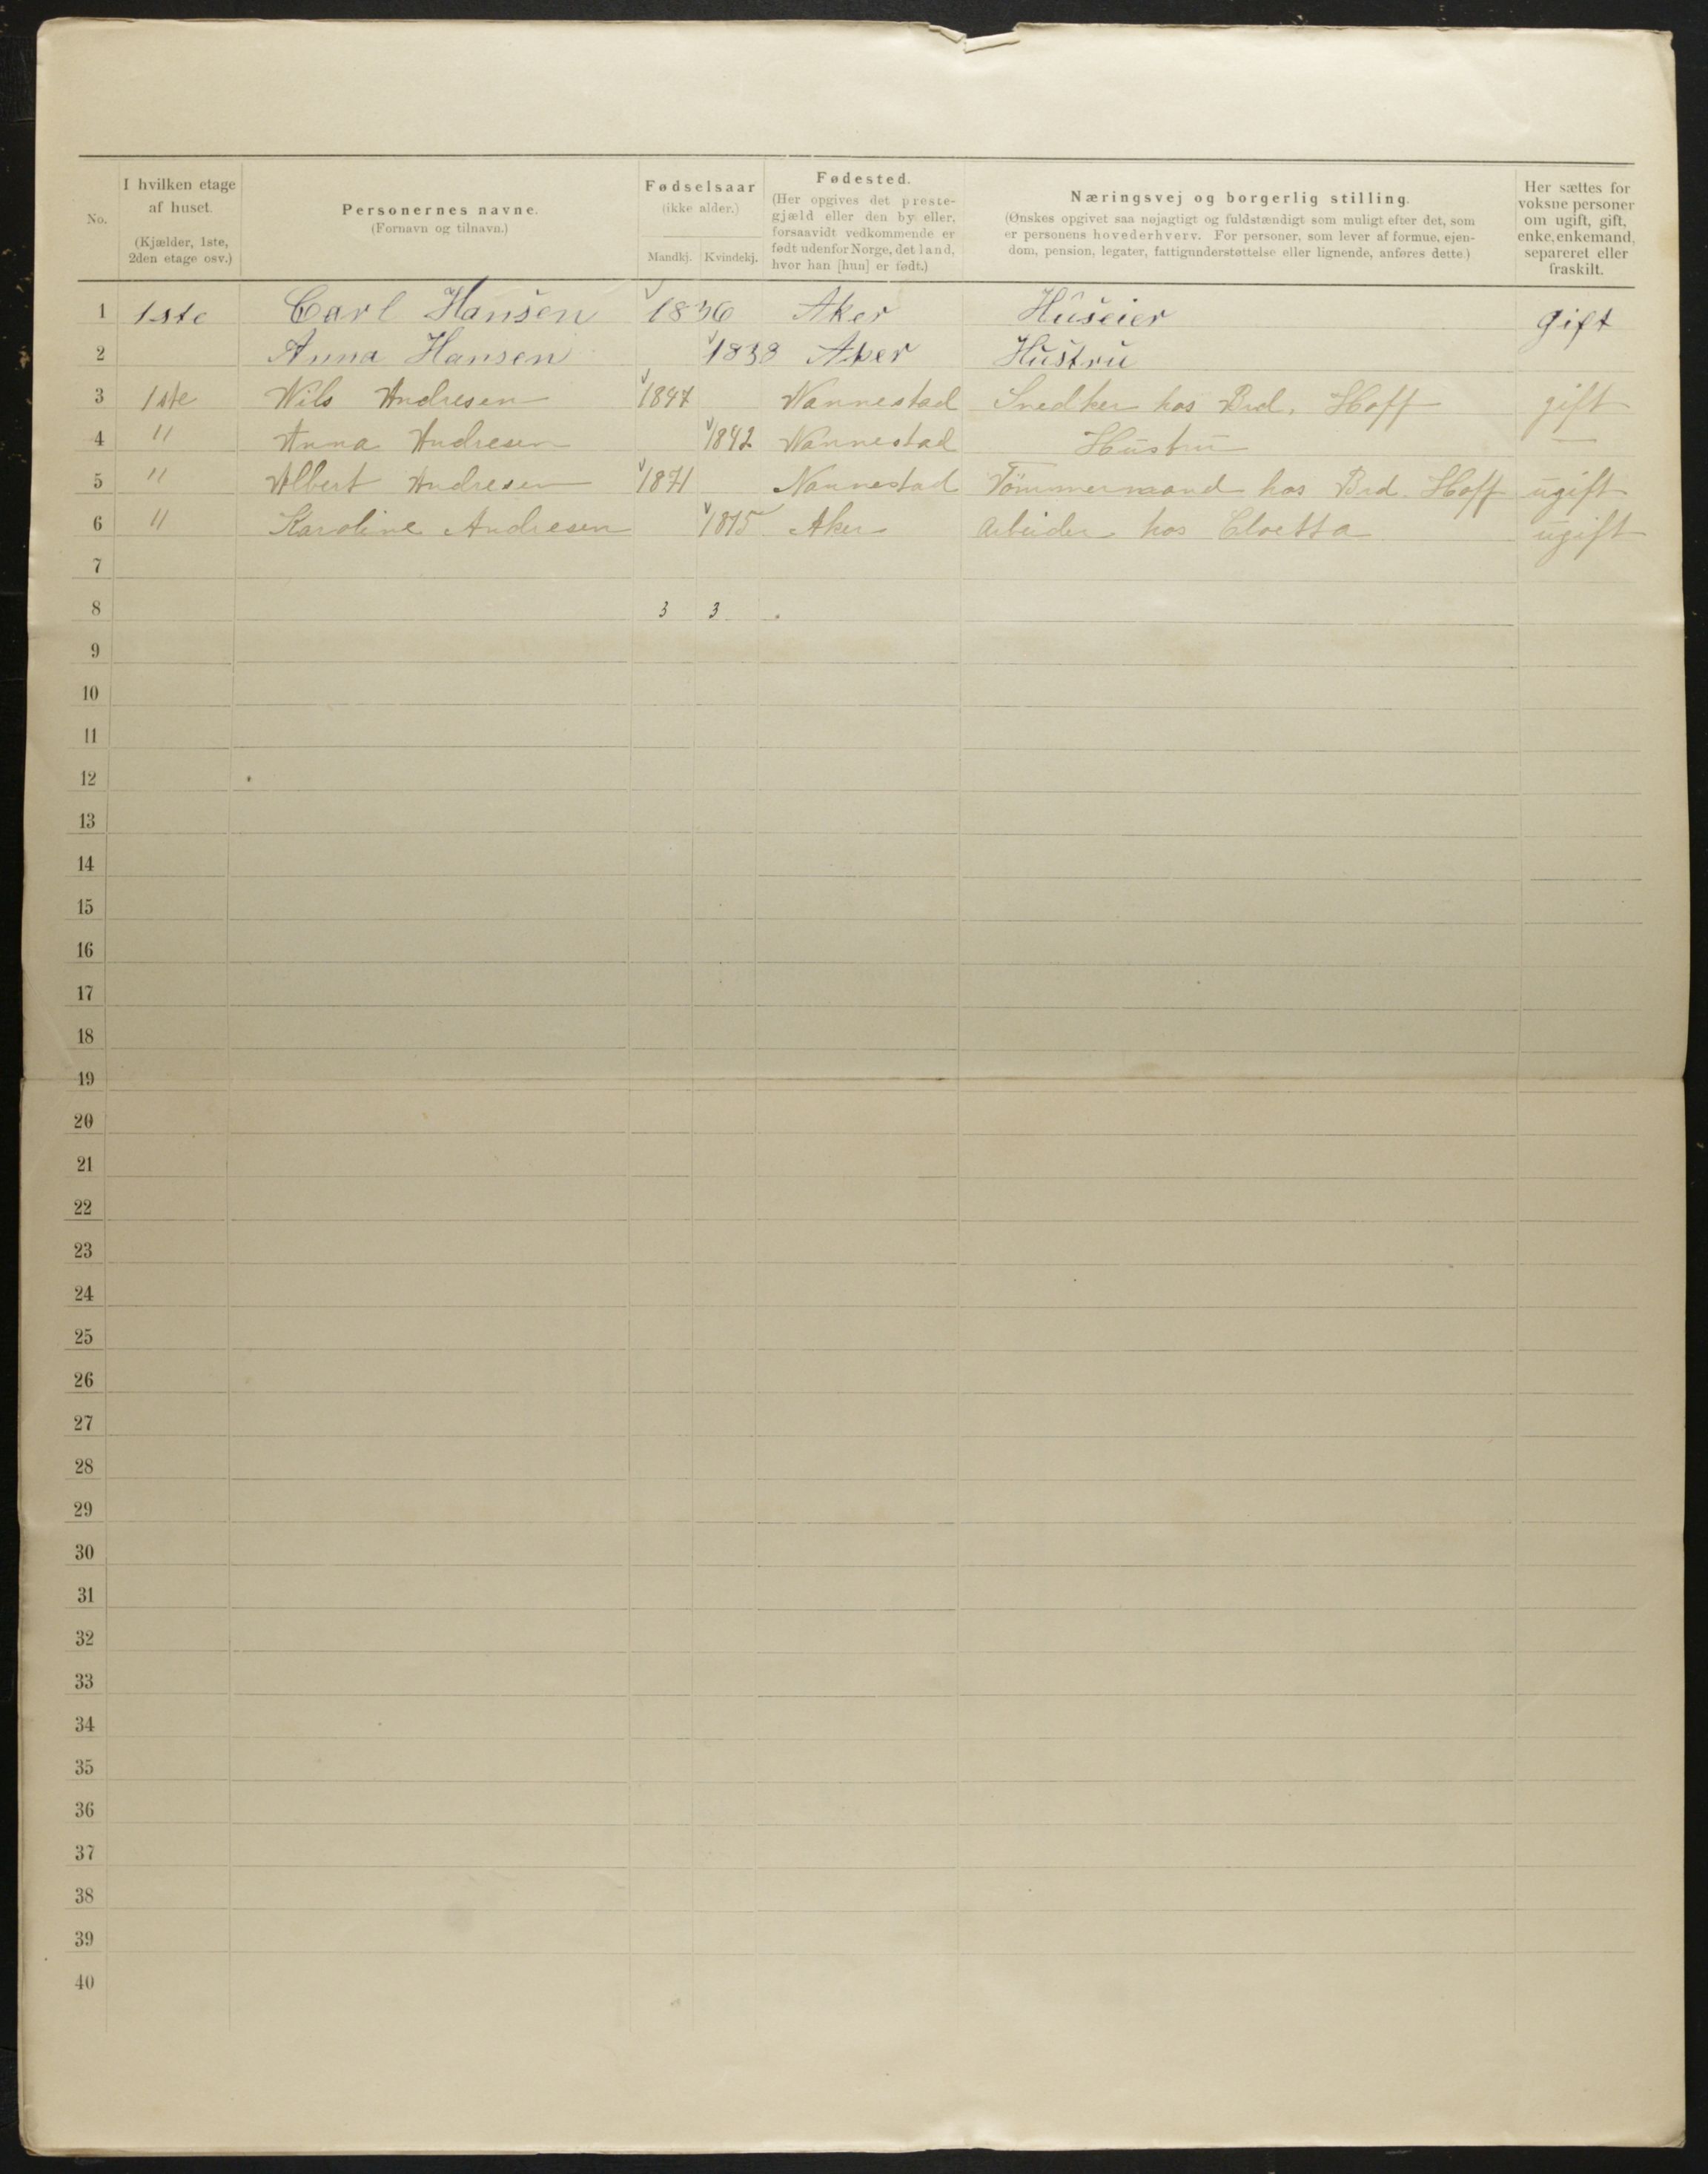 No.
I hvilken etage
af huset.
(Kjælder, 1ste,
2den etage osv.)
Personernes navne.
(Fornavn og tilnavn.)
Fødselsaar
(ikke alder.)
Mandkj. Kvindekj.
Fødested.
(Her opgives det præste-
gjæld eller den by eller,
forsaavidt vedkommende er
født udenfor Norge, det land,
hvor han [hun] er født.)
Næringsvej og borgerlig stilling.
(Ønskes opgivet saa nøjagtigt og fuldstændigt som muligt efter det, som
er personens hovederhverv. For personer, som lever af formue, ejen-
dom, pension, legater, fattigunderstøttelse eller lignende, anføres dette.)
Her sættes for
voksne personer
om ugift, gift,
enke, enkemand,
separeret eller
fraskilt.
1 1ste Carl Hansen 1836 Aker Huseier gift
2 Anna Hansen 1838 Aker Hustru
3 1ste Nils Andresen 1847 Nannestad Snedker hos Brd. Hoff gift
4 " Anna Andresen 1842 Nannestad Hustru —
5 " Albert Andresen 1871 Nannestad Tömmermand hos Brd. Hoff ugift
6 " Karoline Andresen 1875 Aker Arbeider hos Cloetta ugift
7
8 3 3
9
10
11
12
13
14
15
16
17
18
19
20
21
22
23
24
25
26
27
28
29
30
31
32
33
34
35
36
37
38
39
40